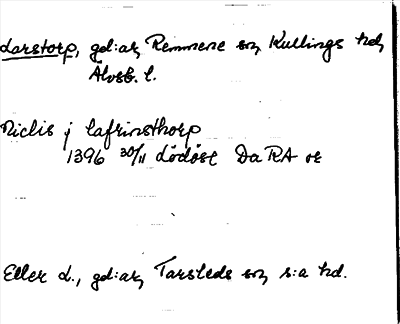 Larstorp, gd:ar, Remmene sn, Kullings hd,
Älvsb. l.
Niclis j Lafrinsthorp
1396 30/11 Lödöse DaRA or
Eller L., gd:ar, Tarsleds sn, s:a hd.